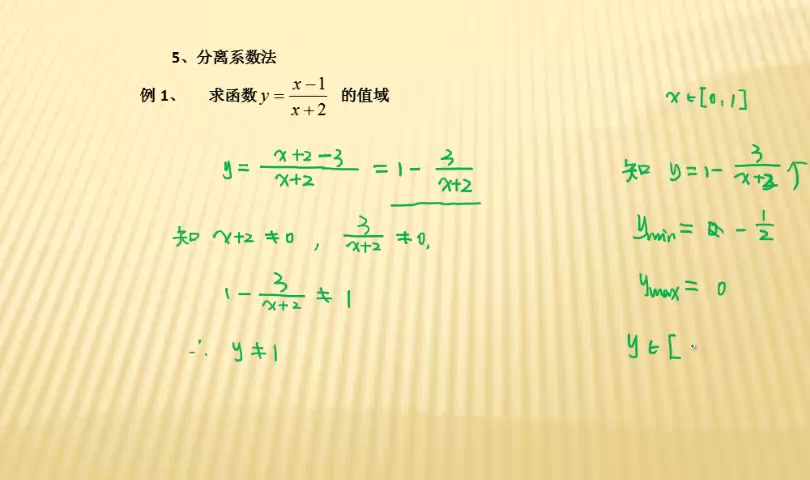 5、分离系数法
例 1、 求函数 y = \frac{x-1}{x+2} 的值域
y = \frac{x+2-3}{x+2} = 1 - \frac{3}{x+2}
知 x+2 ≠ 0 , \frac{3}{x+2} ≠ 0,
1 - \frac{3}{x+2} ≠ 1
∴ y ≠ 1
x ∈ [0,1]
知 y = 1 - \frac{3}{x+2} ↑
y_{min} = - \frac{1}{2}
y_{max} = 0
y ∈ [